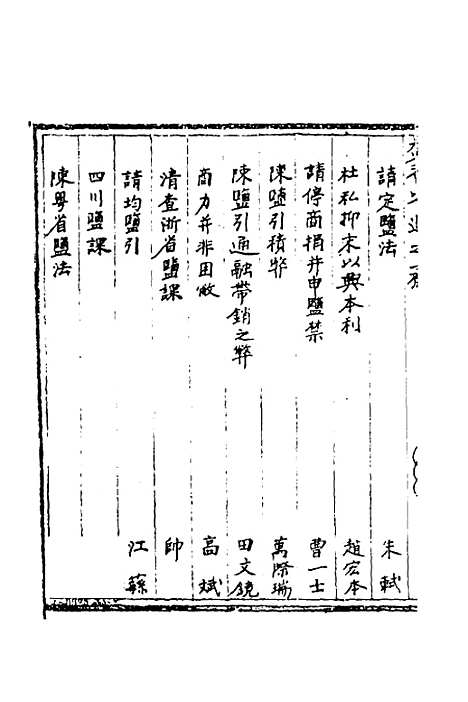 請定鹽法 朱軾
杜私抑末以興本利 趙宏本
請停商捐并申鹽禁 曹一士
陳鹽引積弊 萬際瑞
陳鹽引通融帶銷之弊 田文鏡
商力并非困敝 高斌
清查浙省鹽課 帥
請均鹽引 江蘇
四川鹽課
陳粵省鹽法